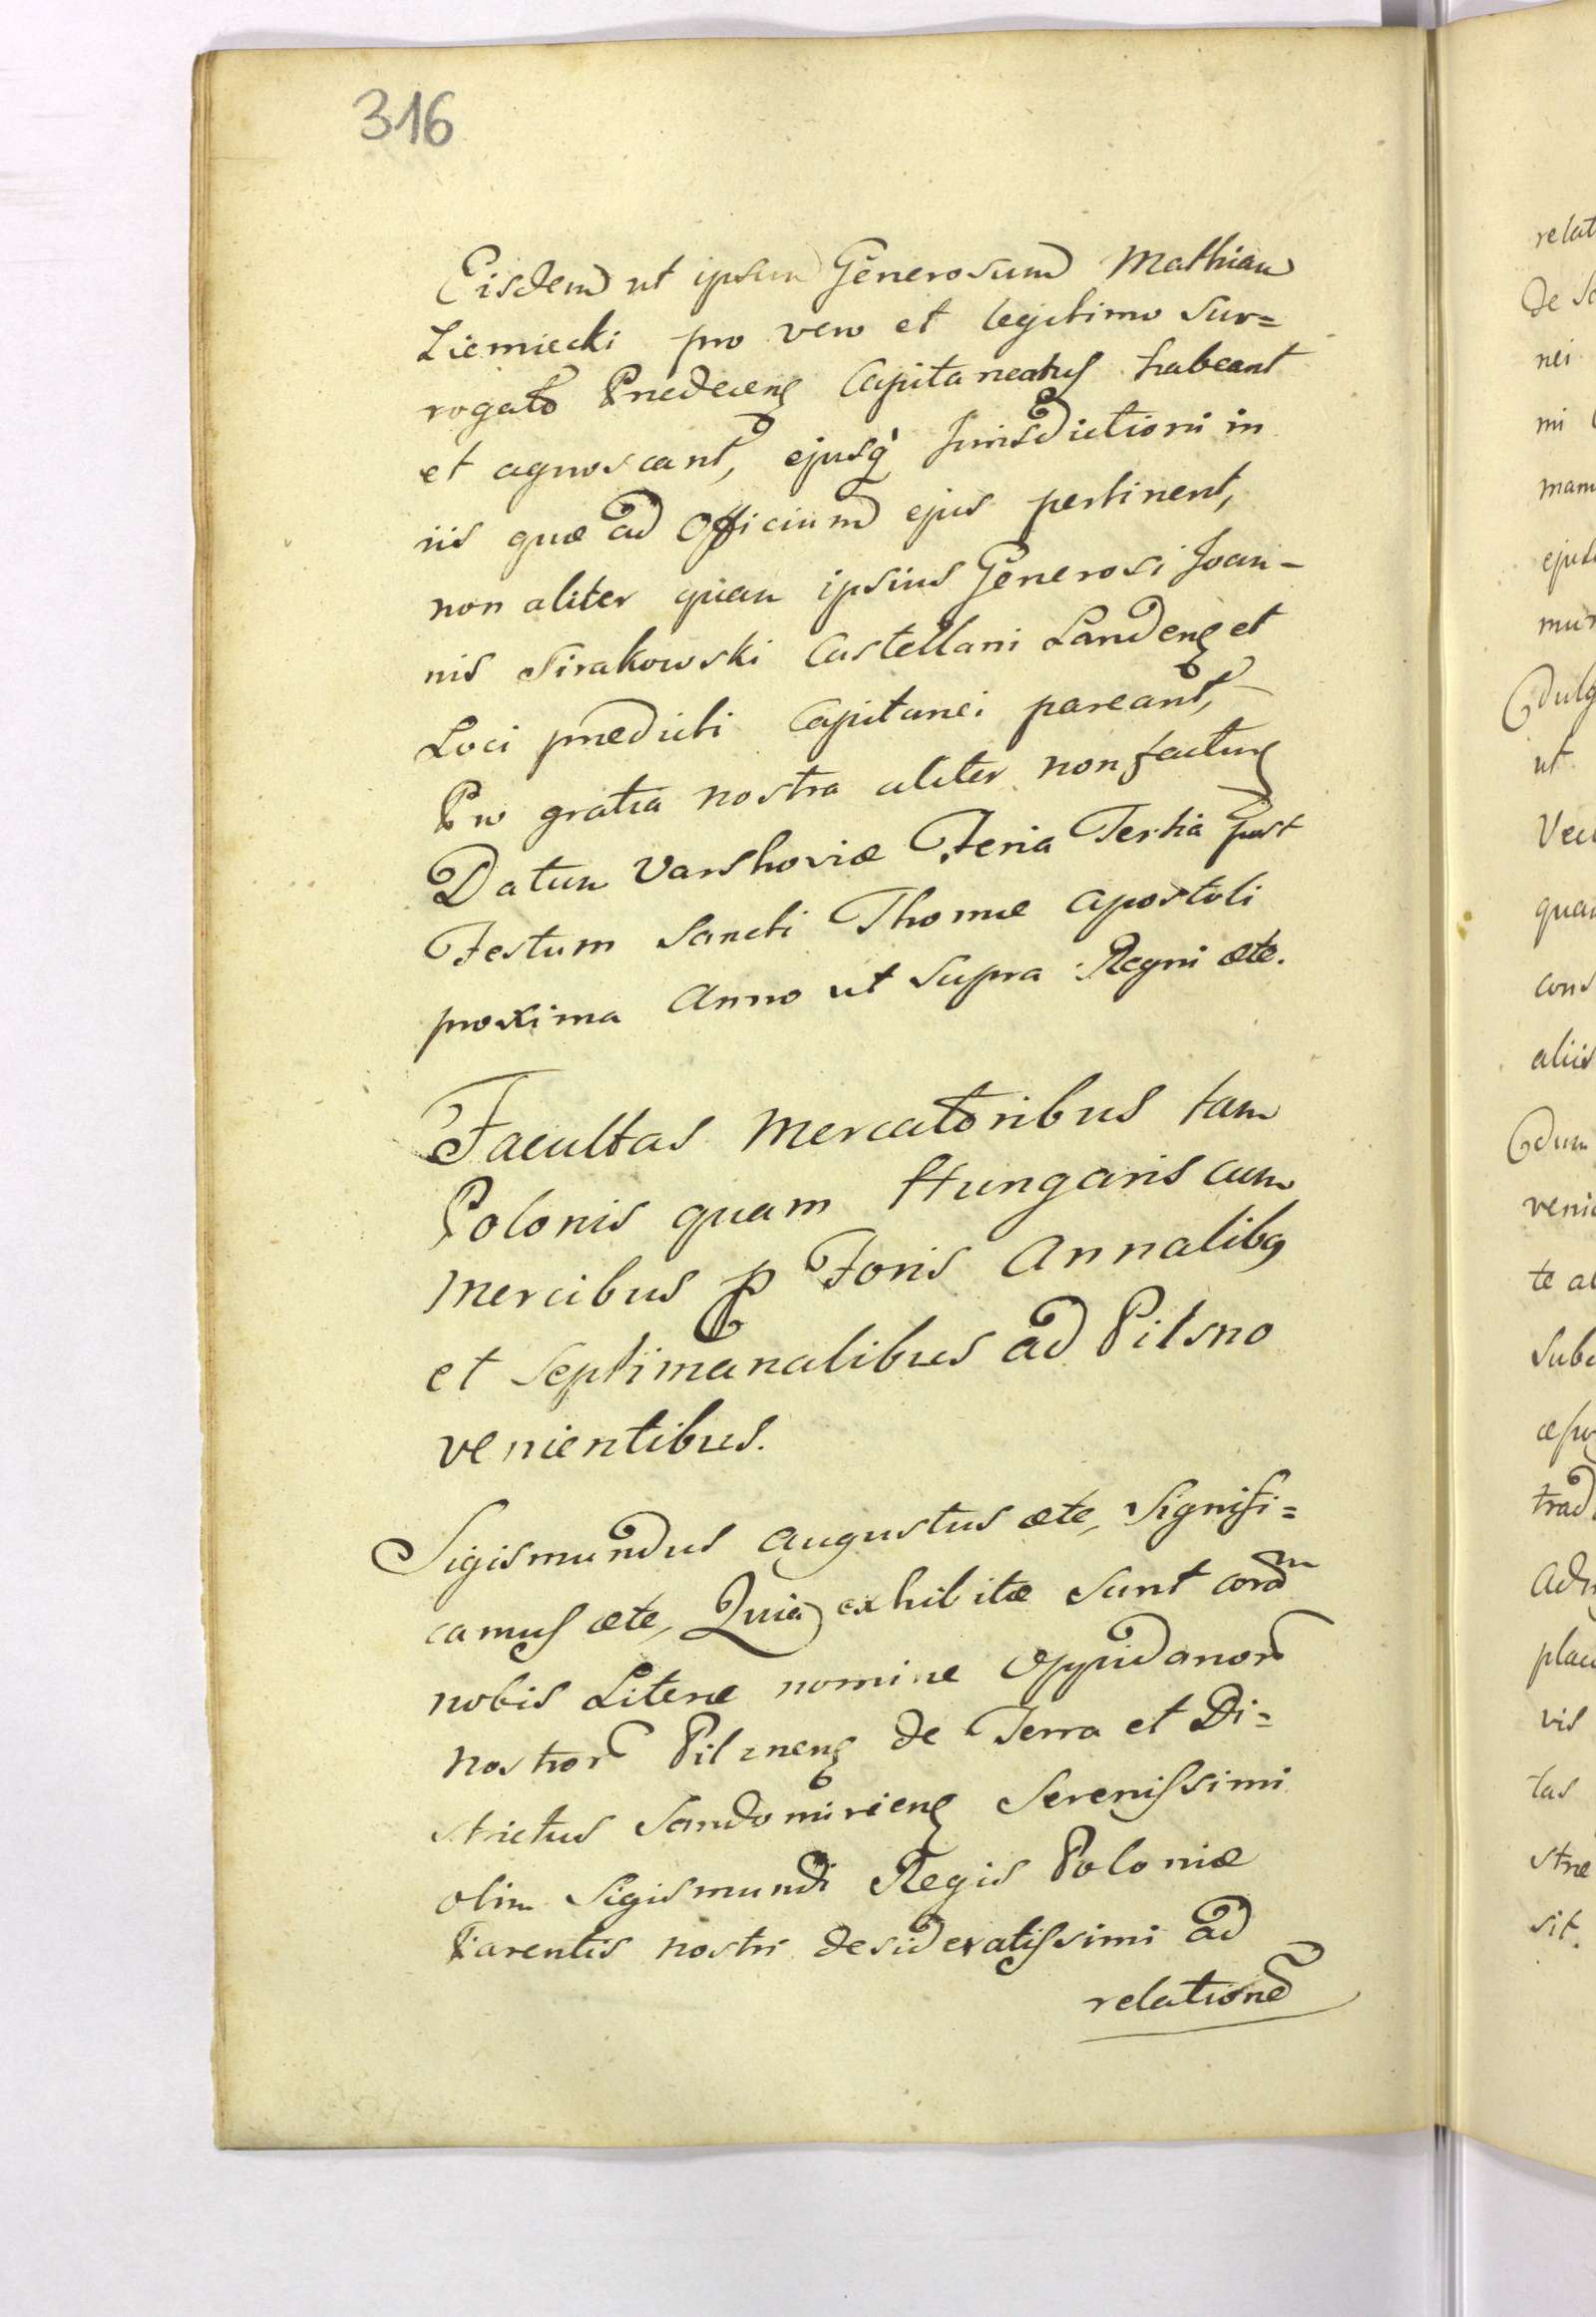 316
Eisdem ut ipsum Generosum Mathiam
Ziemiecki pro vero et legitimo Sur=
rogato Prædecens Capitaneatus habeant
et agnoscant, ejusq̀ Jurisdictioni in
iis quæ ad Officium ejus pertinent,
non aliter quam ipsius Generosi Joan-
nis Sirakowski Castellani Landens et
Loci prædicti Capitanei pareant,
Pro gratia nostra aliter non factur
Datum Varshoviæ Feria Tertia post
Festum Sancti Thomæ Apostoli
proxima Anno ut Supra Regni ætc.
Facultas Mercatoribus tam
Polonis quam Hungaris cum
Mercibus p Foris Annalibq
et Septimanalibus ad Pilsno
venientibus.
Sigismundus Augustus ætc, Signifi=
camus ætc, Quia exhibitæ Sunt coram
nobis Literæ nomine Oppidanor
Nostror Pilznens de Terra et Di=
strictus Sandomiriens Serenissimi
olim Sigismundi Regis Poloniæ
Parentis nostri desideratissimi ad
relationẽ
relat
nei
mi
ut
cons
aliis
te
vis
tas
sit.